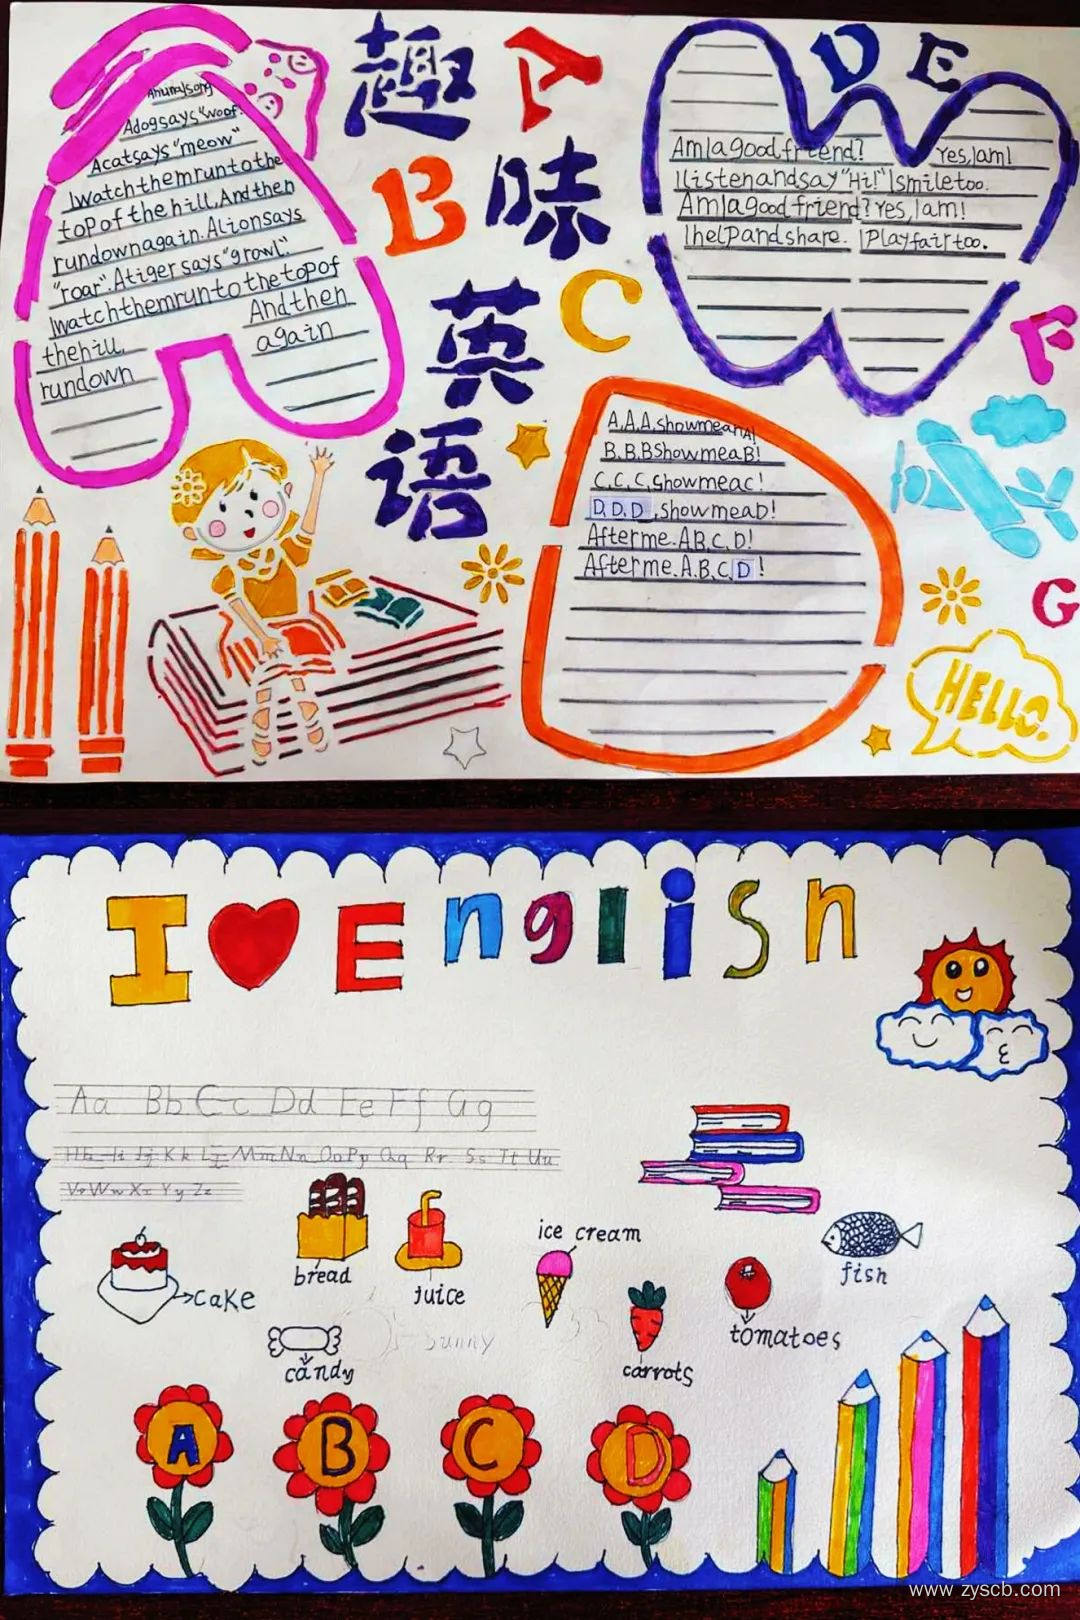 趣味英语
A
B
C
D E
F
G
Animalsong
Adogsays"woof.
Acatsays"meow"
Iwatchthemruntothe
toPofthehill.Andthen
rundownagain.Alionsays
"roar".Atigersays"growl".
Iwatchthemruntothetopof
thehill. Andthen
rundown again
AmIagoodfriend? Yes,Iam!
Ilistenandsay"Hi!"Ismiletoo.
AmIagoodfriend?Yes,Iam!
IhelPandshare. IPlayfairtoo.
A,A,A,showmeanA!
B.B.BShowmeaB!
C.C.C,showmeac!
D,D,D,showmeaD!
Afterme.A,B,C,D!
Afterme.A.B.C.D!
HELLO.
I English
Aa Bb Cc Dd Ee Ff Gg
Hh Ii Jj Kk Ll Mm Nn Oo Pp Qq Rr Ss Tt Uu
Vv Ww Xx Yy Zz
cake
bread
juice
ice cream
fish
candy
sunny
carrots
tomatoes
A B C D
www.zyscb.com